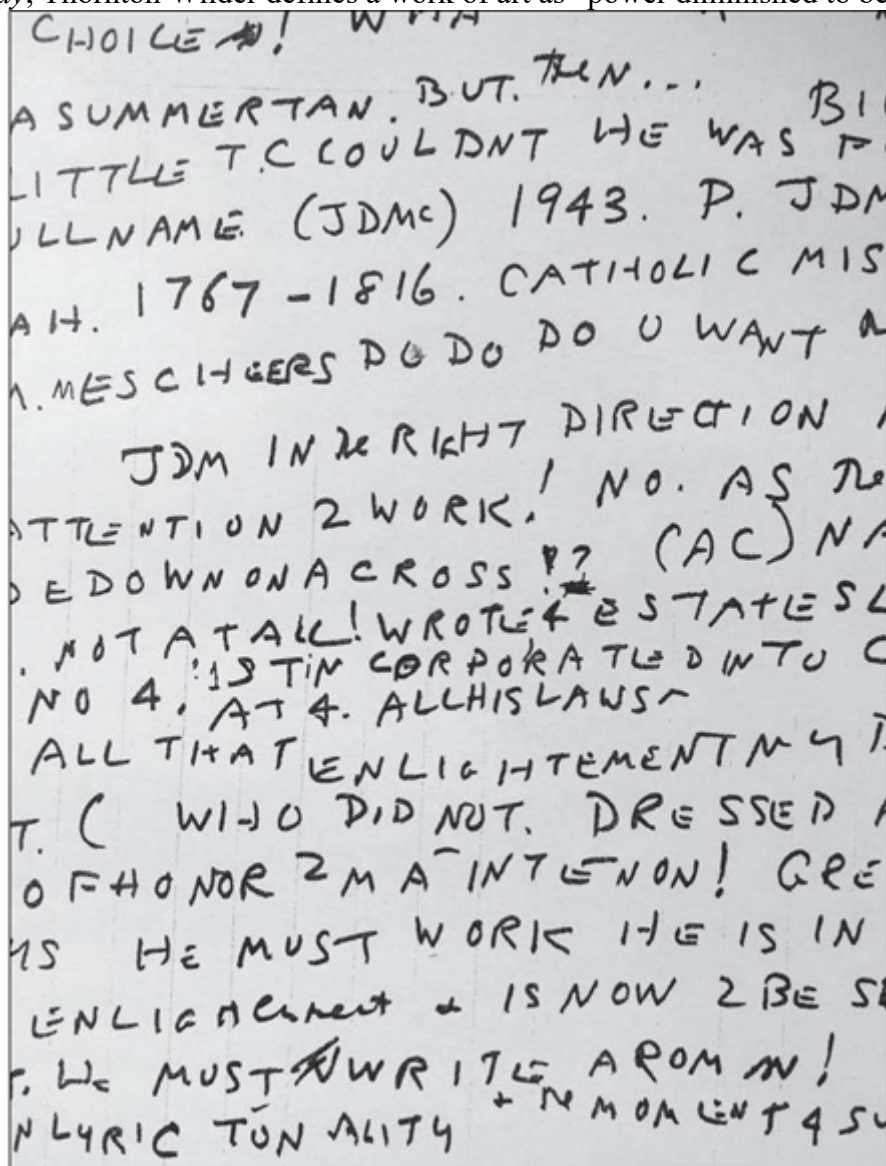 Thornton Wilder defines a work of art as "power diminished to be
CHOICE!
A SUMMERTAN. BUT. THEN... BI
LITTLE T.C COULDNT HE WAS
ULLNAME. (JDMC) 1943. P. JDM
AH. 1767-1816. CATHOLIC MIS
MESCHEERS DO DO DO U WANT
JDM IN THE RIGHT DIRECTION
ATTENTION 2 WORK! NO. AS THE
DEDOWN ON A CROSS !? (AC) NA
. NOT AT ALL! WROTE 4 ESTATES
NO 4. 1ST INCORPORATED INTO
AT 4. ALL HIS LAWS
ALL THAT ENLIGHTEMENT
T. ( WHO DID NOT. DRESSED
OF HONOR 2 MAINTENON! GRE
MS HE MUST WORK HE IS IN
IS NOW 2 BE SE
T. WE MUST WRITE A ROMAN!
N LYRIC TONALITY + THE MOMENT 4 SU